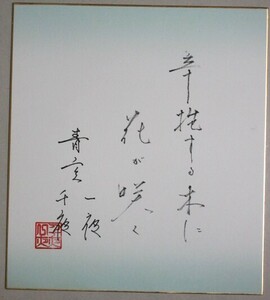 辛抱する木に
花が咲く
青空
一夜
千夜